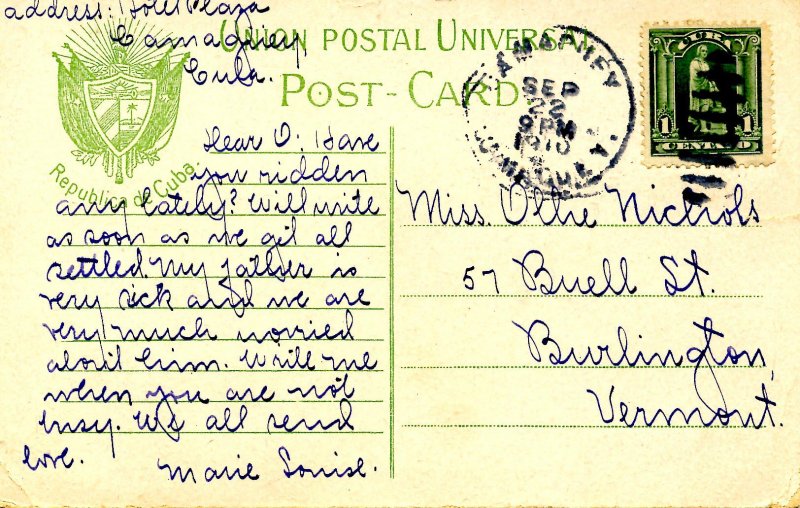 address: Hotel Plaza
Camagüey
Cuba.
UNION POSTAL UNIVERSAL
POST-CARD
Republica de Cuba
Dear O: Have
you ridden
any lately? Will write
as soon as we get all
settled. My father is
very sick and we are
very much worried
about him. Write me
when you are not
busy. We all send
love.
Marie Louise.
SEP
22
9 PM
1910
CUBA
1 CENTAVO 1
Miss. Ollie Nichols
57 Buell St.
Burlington,
Vermont.